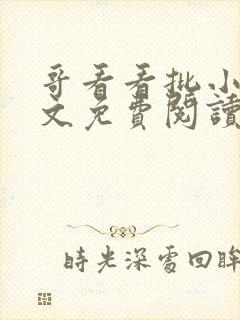 哥看看批小
文免費閱讀
時光深處回眸